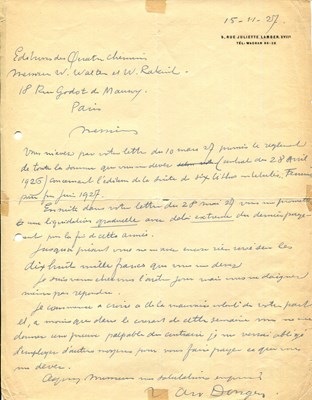 15-11-27.
5, RUE JULIETTE LAMBER. XVIIe
TÉL: WAGRAM
Editions des Quatre Chemins
Messieurs W. Walter et W. Rakint.
18 Rue Godot de Mauroy.
Paris
Messieurs
Vous m'avez par votre lettre du 10 mars 27 promis le règlement
de toute la somme que vous me devez (contrat du 28 Avril
1926) concernant l'édition de la suite de six litho intitulée,
pour fin Juin 1927.
Ensuite dans votre lettre du 28 mai 27 vous me promettez
une liquidation graduelle avec délai extrême du dernier paye-
ment pour la fin de cette année.
Jusqu'à présent vous ne m'avez encore rien versé sur les
dix huit mille francs que vous me devez
Je suis venu chez vous l'autre jour mais vous ne daignez
même pas répondre.
Je commence à croire à de la mauvaise volonté de votre part
et, à moins que dans le courant de cette semaine vous ne me
donniez une preuve palpable du contraire je me verrai obligé
d'employer d'autres moyens pour vous faire payer ce que vous
me devez.
Agréez Messieurs mes salutations
van Dongen